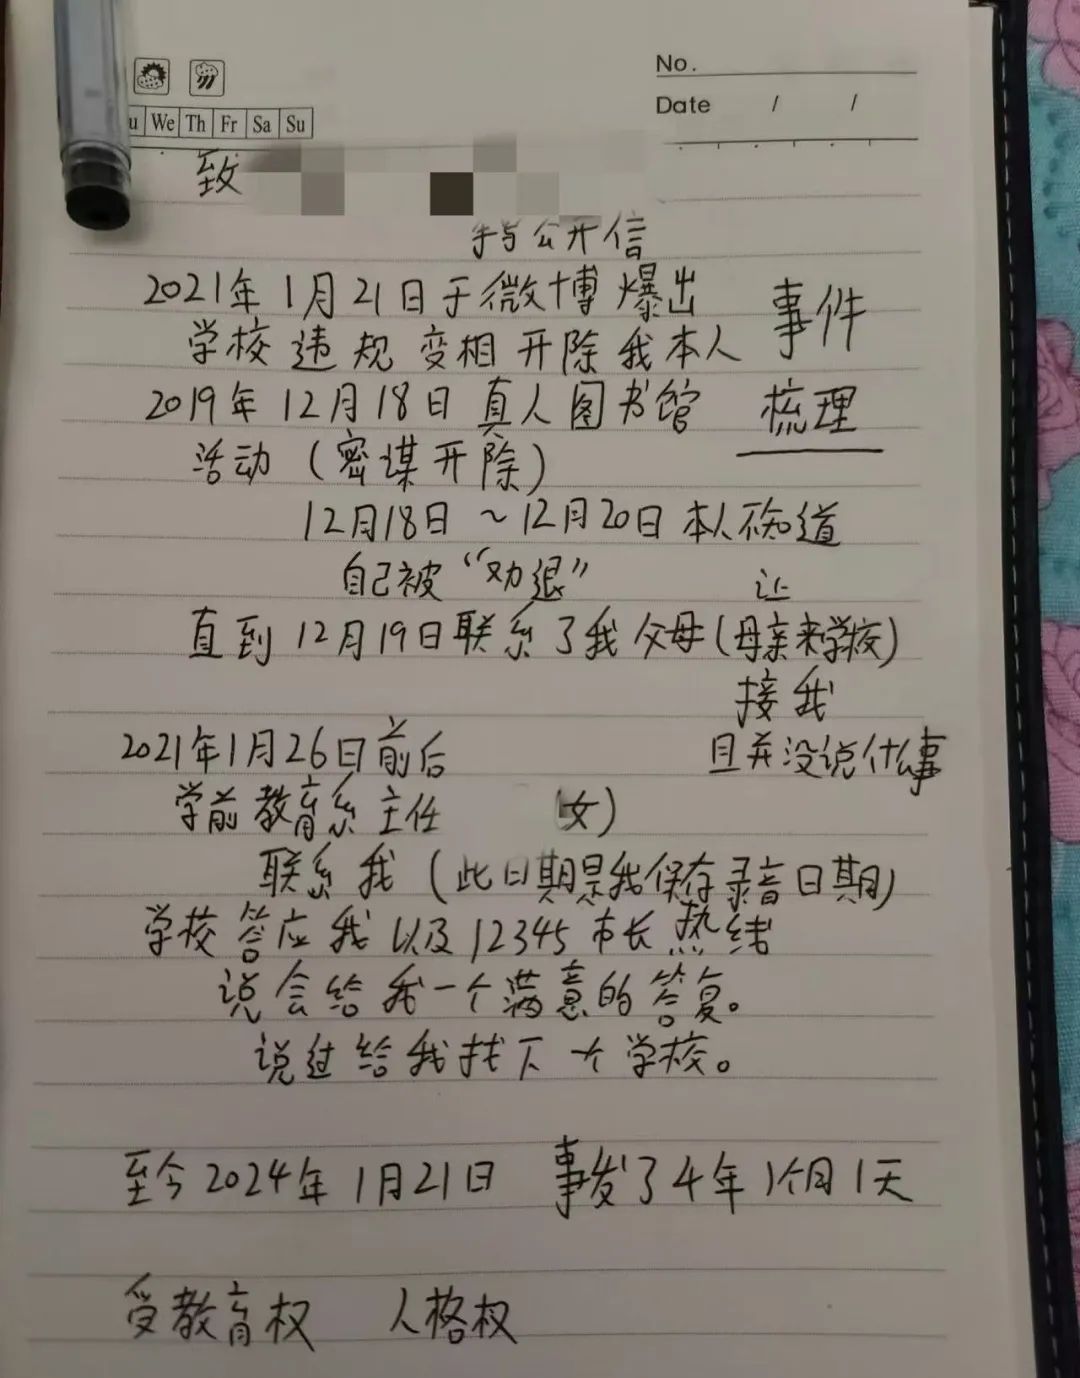 No.
Date / /
u We Th Fr Sa Su
致
手写公开信
2021年1月21日于微博爆出
事件
学校违规变相开除我本人
2019年12月18日真人图书馆
梳理
活动（密谋开除）
12月18日~12月20日本人不知道
自己被“劝退”
让
直到12月19日联系了我父母（母亲来学校）
接我
2021年1月26日前后
且并没说什么事
学前教育系主任 （女）
联系我（此日期是我保存录音日期）
学校答应我以及12345市长热线
说会给我一个满意的答复。
说过给我找下个学校。
至今2024年1月21日 事发了4年1个月1天
受教育权 人格权